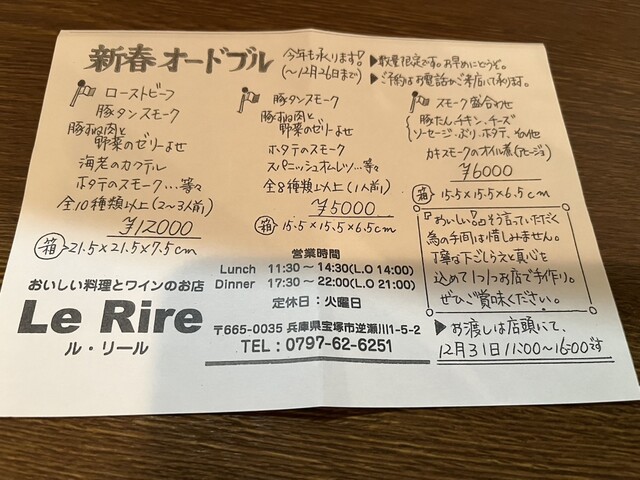 新春オードブル
今年も承ります!
(〜12月26日まで)
▶数量限定です。お早めにどうぞ。
▶ご予約はお電話かご来店にて承ります。
ローストビーフ
豚タンスモーク
豚すね肉と
野菜のゼリーよせ
海老のカクテル
ホタテのスモーク…等々
全10種類以上(2〜3人前)
¥12000
箱 21.5×21.5×7.5cm
豚タンスモーク
豚すね肉と
野菜のゼリーよせ
ホタテのスモーク
スパニッシュオムレツ…等々
全8種類以上(1人前)
¥5000
箱 15.5×15.5×6.5cm
スモーク盛合わせ
豚たん、チキン、チーズ
ソーセージ、ぶり、ホタテ、その他
カキスモークのオイル煮(アヒージョ)
¥6000
箱 15.5×15.5×6.5cm
『おいしい!』そう言っていただく
為の手間は惜しみません。
丁寧な下ごしらえと真心を
込めて1つ1つお店で手作り。
ぜひご賞味ください。
▶お渡しは店頭にて、
12月31日11:00〜16:00です
営業時間
Lunch 11:30〜14:30(L.O 14:00)
Dinner 17:30〜22:00(L.O 21:00)
定休日:火曜日
おいしい料理とワインのお店
Le Rire
ル・リール
〒665-0035 兵庫県宝塚市逆瀬川1-5-2
TEL:0797-62-6251